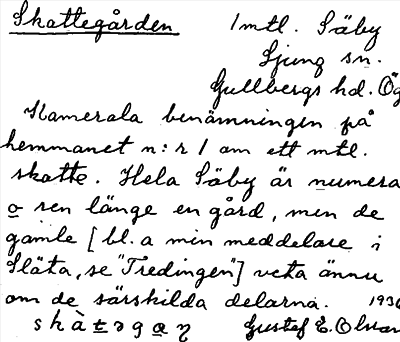 Skattegården 1 mtl. Säby
Ljung sn.
Gullbergs hd. Ög
Kamerala benämningen på
hemmanet n:r 1 om ett mtl.
skatte. Hela Säby är numera
o sen länge en gård, men de
gamle [bl.a min meddelare i
Släta, se "Tredingen"] veta ännu
om de särskilda delarna. 1936
skàtəgaɳ Gustef E. Olsson